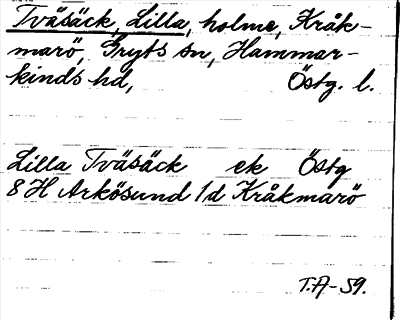 Tväsäck, Lilla, holme, Kråk-
marö, Gryts sn, Hammar-
kinds hd, Östg. l.
Lilla Tväsäck ek Östg
8 H Arkösund 1d Kråkmarö
T.A-59.